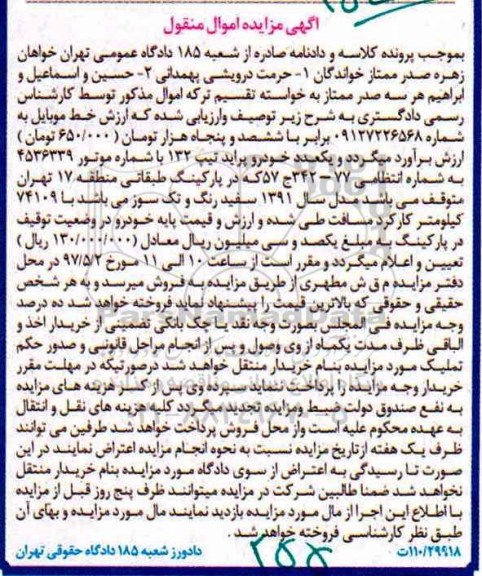 آگهی مزایده اموال منقول
بموجب پرونده کلاسه و دادنامه صادره از شعبه ۱۸۵ دادگاه عمومی تهران خواهان
زهره صدر ممتاز خواندگان ۱- حرمت درویشی پهمدانی ۲- حسین و اسماعیل و
ابراهیم هر سه صدر ممتاز به خواسته تقسیم ترکه اموال مذکور توسط کارشناس
رسمی دادگستری به شرح زیر توصیف وارزیابی شده که ارزش خط موبایل به
شماره ۰۹۱۲۷۲۲۶۵۶۸ برابر با ششصد و پنجاه هزار تومان (۶۵۰/۰۰۰ تومان)
ارزش برآورد میگردد و یکعدد خودرو پراید تیپ ۱۳۲ با شماره موتور ۴۵۳۶۳۳۹
به شماره انتظامی ۷۷ – ۳۴۲ج ۵۷که در پارکینگ طبقاتی منطقه ۱۷ تهران
متوقف می باشد مدل سال ۱۳۹۱ سفید رنگ و تک سوز می باشد با ۷۴۱۰۹
کیلومتر کارکرد مسافت طی شده و ارزش و قیمت پایه خودرو در وضعیت توقیف
در پارکینگ به مبلغ یکصد و سی میلیون ریال معادل (۱۳۰/۰۰۰/۰۰۰ ریال)
تعیین و اعلام میگردد و مقرر است از ساعت ۱۰ الی ۱۱ مورخ ۹۷/۵/۲ در محل
دفتر مزایده م ق ش مطهری از طریق مزایده به فروش میرسد و به هر شخص
حقیقی و حقوقی که بالاترین قیمت را پیشنهاد نماید فروخته خواهد شد ده درصد
وجه مزایده فی المجلس بصورت وجه نقد یا چک بانکی تضمینی از خریدار اخذ و
الباقی ظرف مدت یکماه از وی وصول و پس از انجام مراحل قانونی و صدور حکم
تملیک مورد مزایده بنام خریدار منتقل خواهد شد درصورتیکه در مهلت مقرر
خریدار وجه مزایده را پرداخت ننماید سپرده وی پس از کسر هزینه های مزایده
به نفع صندوق دولت ضبط ومزایده تجدید میگردد کلیه هزینه های نقل و انتقال
به عهده محکوم علیه است واز محل فروش پرداخت خواهد شد طرفین می توانند
ظرف یک هفته ازتاریخ مزایده نسبت به نحوه انجام مزایده اعتراض نمایند در این
صورت تا رسیدگی به اعتراض از سوی دادگاه مورد مزایده بنام خریدار منتقل
نخواهد شد ضمنا طالبین شرکت در مزایده میتوانند ظرف پنج روز قبل از مزایده
با اطلاع این اجرا از مال مورد مزایده بازدید نمایند مال مورد مزایده و بهای آن
طبق نظر کارشناسی فروخته خواهد شد.
۱۱۰/۲۹۹۱۸ت دادورز شعبه ۱۸۵ دادگاه حقوقی تهران